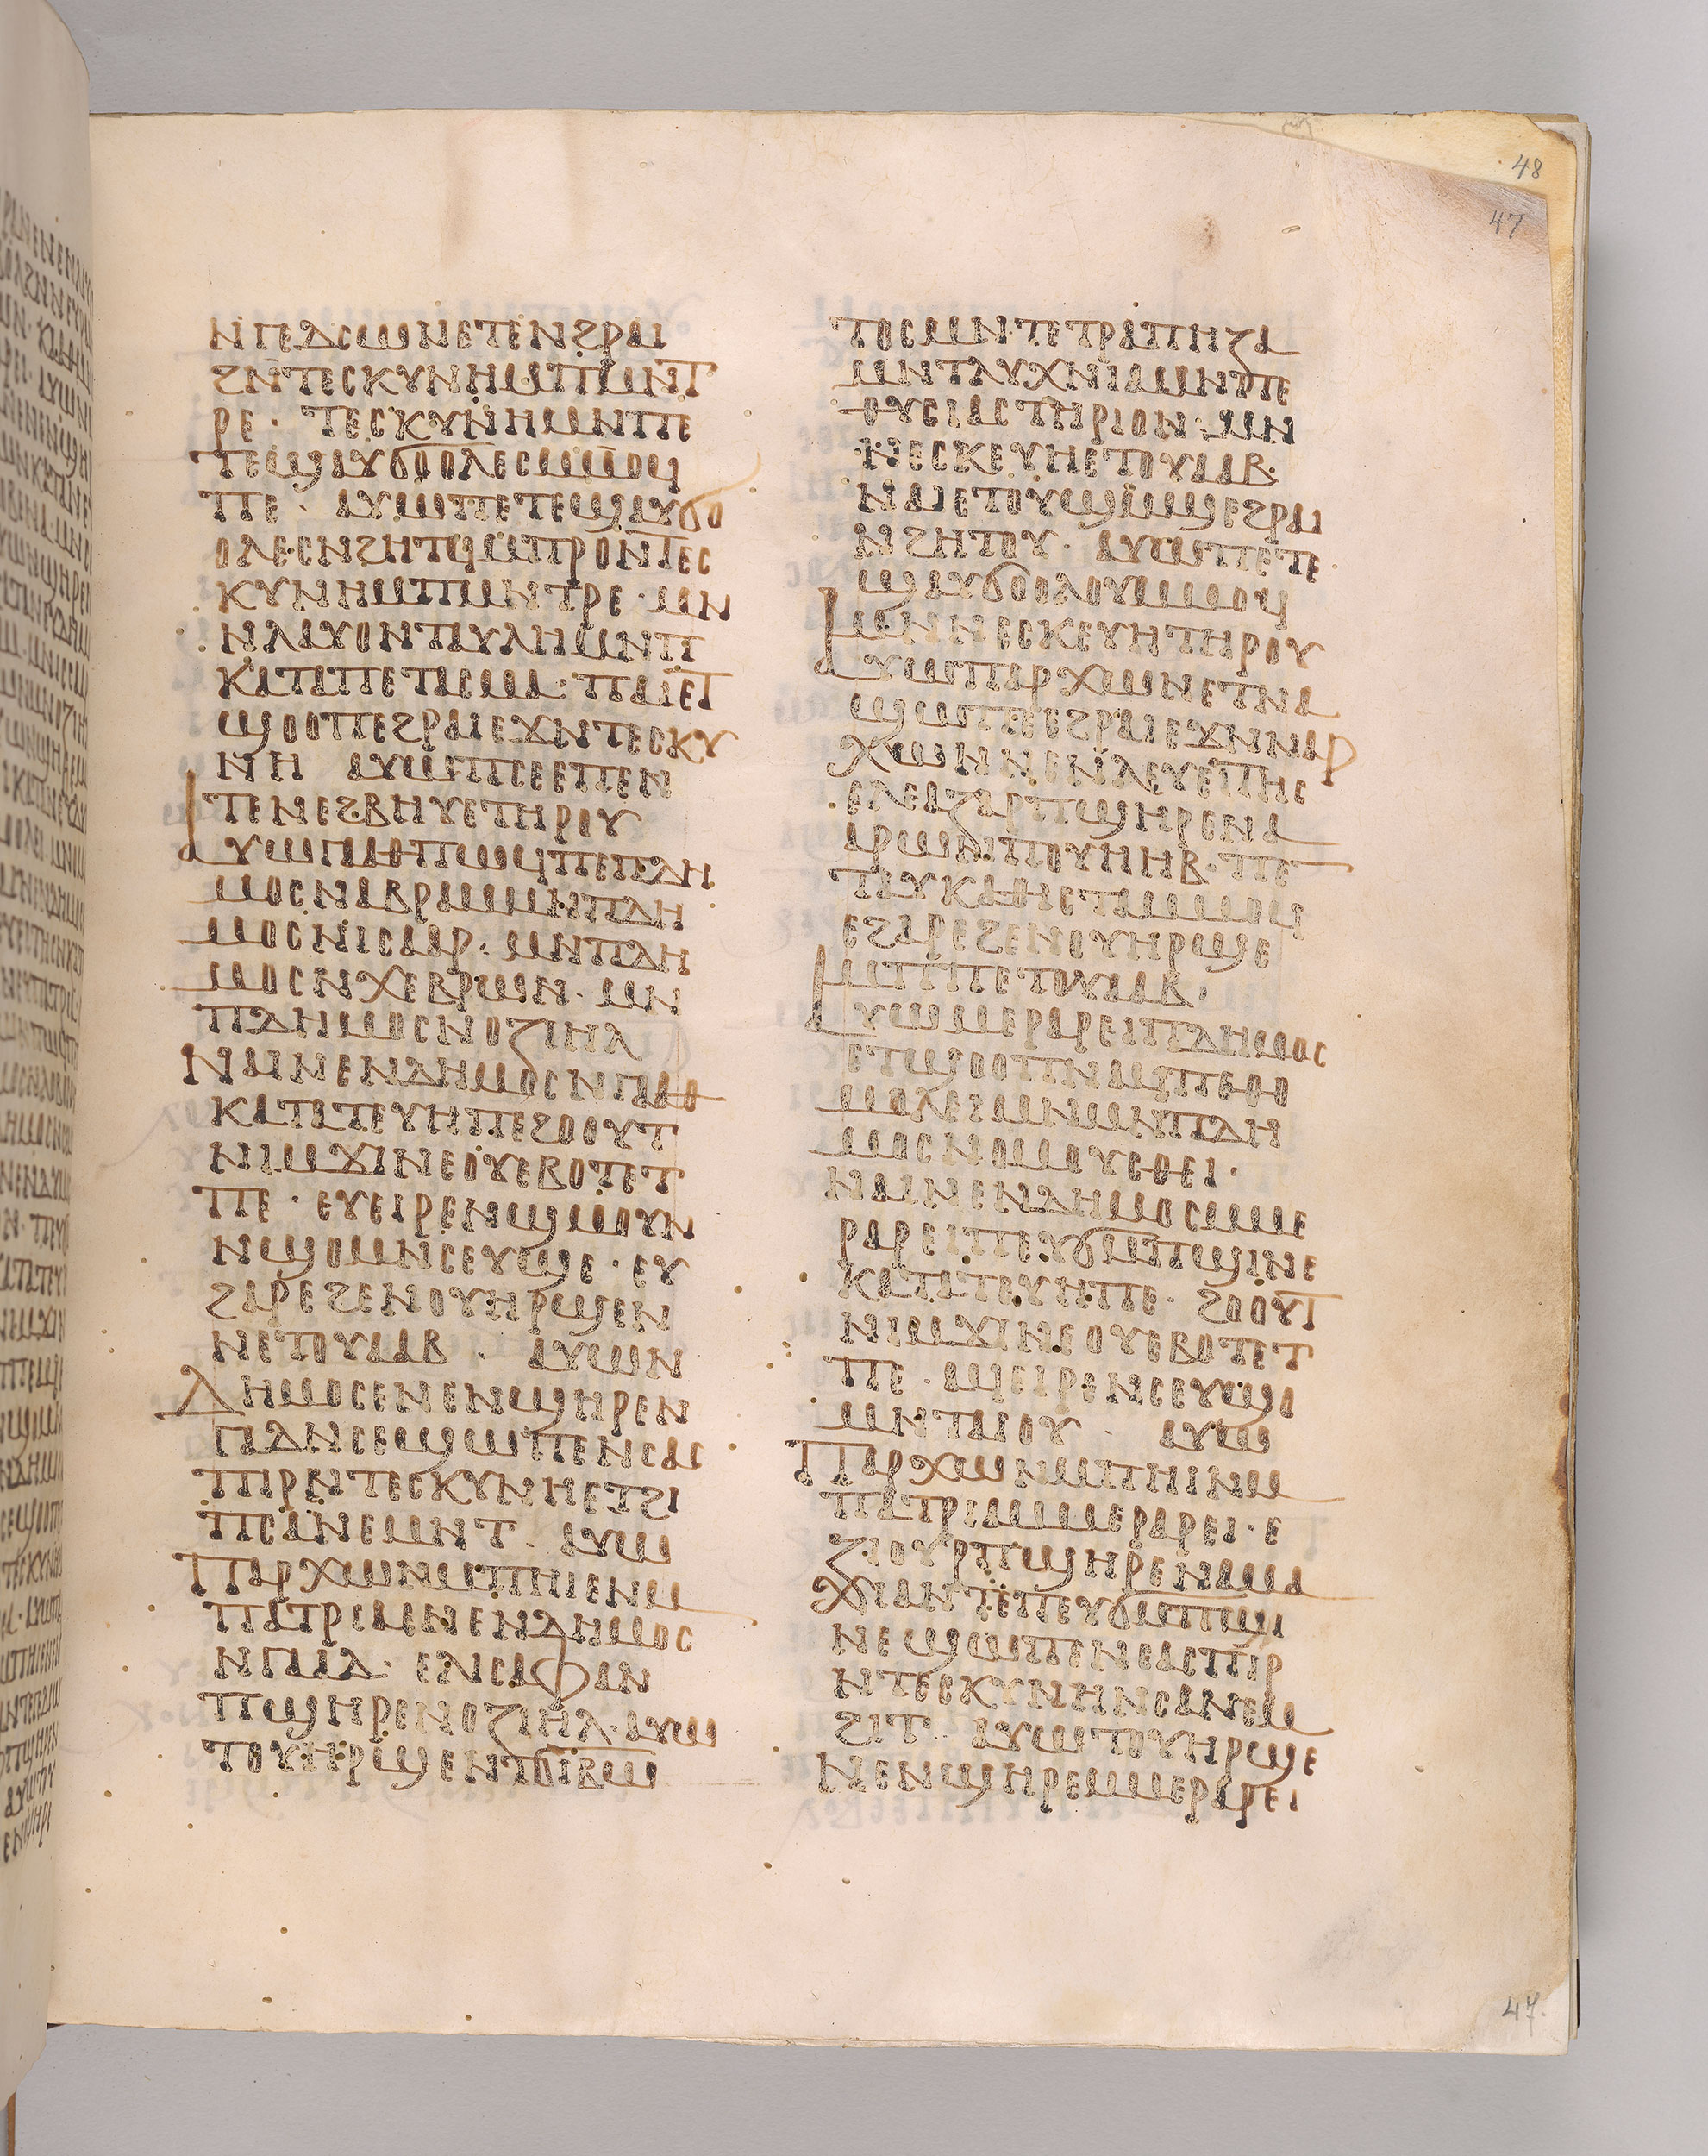 ⲛⲅⲉⲇⲥⲱⲛⲉⲧⲉⲛϩⲣⲁⲓ
ϩⲛⲧⲉⲥⲕⲩⲛⲏⲙⲡⲙⲛⲧ
ⲣⲉ · ⲧⲉⲥⲕⲩⲛⲏⲙⲛⲡⲉ
ⲧⲉϣⲁⲩϭⲟⲟⲗⲉⲥⲙⲙⲟϥ
ⲡⲉ · ⲁⲩⲱⲡⲉⲧⲉϣⲁⲩϭⲟ
ⲟⲗⲉⲥⲛϩⲏⲧϥⲙⲡⲣⲟⲛⲧⲉⲥ
ⲕⲩⲛⲏⲙⲡⲙⲛⲧⲣⲉ · ⲙⲛ
ⲛⲗⲁⲩⲟⲛⲧⲁⲩⲗⲏⲙⲛⲡ
ⲕⲁⲧⲁⲡⲉⲧⲁⲥⲙⲁ · ⲡⲁⲓⲉⲧ
ϣⲟⲟⲡⲉϩⲣⲁⲓⲉϫⲛⲧⲉⲥⲕⲩ
ⲛⲏ ⲁⲩⲱⲡⲥⲉⲉⲡⲉⲛ
ⲧⲉⲛⲉϩⲃⲏⲩⲉⲧⲏⲣⲟⲩ
ⲁⲩⲱⲅⲁⲁⲑⲡⲱϥⲡⲉⲡⲇⲏ
ⲙⲟⲥⲛⲁⲃⲣⲁⲙⲙⲛⲡⲇⲏ
ⲙⲟⲥⲛⲓⲥⲁⲁⲣ · ⲙⲛⲡⲇⲏ
ⲙⲟⲥⲛⲭⲉⲃⲣⲱⲛ · ⲙⲛ
ⲡⲇⲏⲙⲟⲥⲛⲟⲍⲓⲏⲗ
ⲛⲁⲓⲛⲉⲛⲇⲏⲙⲟⲥⲛⲅⲁⲁⲑ
ⲕⲁⲧⲁⲧⲉⲩⲏⲡⲉϩⲟⲟⲩⲧ
ⲛⲓⲙϫⲓⲛⲉⲟⲩⲉⲃⲟⲧⲉⲧ
ⲡⲉ · ⲉⲩⲉⲓⲣⲉⲛϣⲙⲟⲩⲛ
ⲛϣⲟⲙⲛⲥⲉⲩϣⲉ · ⲉⲩ
ϩⲁⲣⲉϩⲉⲛⲟⲩⲏⲣϣⲉⲛ
ⲛⲉⲧⲟⲩⲁⲁⲃ · ⲁⲩⲱⲛ
ⲇⲏⲙⲟⲥⲉⲛⲉⲛϣⲏⲣⲉⲛ
ⲅⲁⲇⲛⲥⲉϣⲱⲡⲉⲛⲥⲁⲥ
ⲡⲓⲣⲛⲧⲉⲥⲕⲩⲛⲏⲉⲧϩⲓ
ⲡⲥⲁⲛⲉⲙⲛⲧ · ⲁⲩⲱ
ⲡⲁⲣⲭⲱⲛⲙⲡⲏⲓⲉⲛⲙ
ⲡⲁⲧⲣⲓⲁⲉⲛⲉⲛⲇⲏⲙⲟⲥ
ⲛⲅⲁⲁⲇ · ⲉⲗⲓⲥⲁⲫⲁⲛ
ⲡϣⲏⲣⲉⲛⲟⲍⲓⲏⲗ · ⲁⲩⲱ
ⲧⲟⲩⲏⲣϣⲉⲛⲧϭⲓⲃⲱ
ⲧⲟⲥⲙⲛⲧⲉⲧⲣⲁⲡⲏⲍⲁ
ⲙⲛⲧⲗⲩⲭⲛⲓⲁⲙⲛⲡⲉ
ⲑⲩⲥⲓⲁⲥⲧⲏⲣⲓⲟⲛ · ⲙⲛ
ⲛⲉⲥⲕⲉⲩⲏⲉⲧⲟⲩⲁⲁⲃ ·
ⲛⲁⲓⲉⲧⲟⲩϣⲙϣⲉϩⲣⲁⲓ
ⲛϩⲏⲧⲟⲩ · ⲁⲩⲱⲡⲉⲧⲉ
ϣⲁⲩϭⲟⲟⲗⲟⲩⲙⲙⲟϥ
ⲙⲛⲛⲉⲥⲕⲉⲩⲏⲧⲏⲣⲟⲩ
ⲁⲩⲱⲡⲁⲣⲭⲱⲛⲉⲧⲛⲁ
ϣⲱⲡⲉⲉϩⲣⲁⲓⲉϫⲛⲛⲁⲣ
ⲭⲱⲛⲛⲉⲛⲗⲉⲩⲉⲓⲧⲏⲥ
ⲉⲗⲉⲁⲍⲁⲣⲡϣⲏⲣⲉⲛⲁ
ⲁⲣⲱⲛⲡⲟⲩⲏⲏⲃ · ⲡⲉ
ⲧⲁⲩⲕⲁⲑⲓⲥⲧⲁⲙⲙⲟϥ
ⲉϩⲁⲣⲉϩⲉⲛⲟⲩⲏⲣϣⲉ
ⲙⲡⲡⲉⲧⲟⲩⲁⲁⲃ ·
ⲁⲩⲱⲙⲉⲣⲁⲣⲉⲓⲡⲇⲏⲙⲟⲥ
ⲉⲧϣⲟⲟⲡⲛⲁϥⲡⲉⲑⲟ
ⲙⲟⲗⲉⲓⲙⲛⲙⲛⲡⲇⲏ
ⲙⲟⲥⲛⲟⲙⲟⲩⲥⲑⲉⲓ ·
ⲛⲁⲓⲛⲉⲛⲇⲏⲙⲟⲥⲙⲙⲉ
ⲣⲁⲣⲉⲓⲡⲉⲩϭⲙⲡϣⲓⲛⲉ
ⲕⲁⲧⲁⲧⲟⲩⲏⲡⲉ · ϩⲟⲟⲩⲧ
ⲛⲓⲙϫⲓⲛⲉⲟⲩⲉⲃⲟⲧⲉⲧ
ⲡⲉ · ⲁϥⲉⲓⲣⲉⲛⲥⲉⲩϣⲉ
ⲙⲛⲧⲁⲓⲟⲩ · ⲁⲩⲱ
ⲡⲁⲣⲭⲱⲛⲙⲡⲏⲓⲛⲙ
ⲡⲁⲧⲣⲓⲁⲙⲙⲉⲣⲁⲣⲉⲓ · ⲉ
ⲍⲓⲟⲩⲣⲡϣⲏⲣⲉⲛⲁⲙⲁ
ⲭⲓⲁⲛⲧⲉⲡⲉⲩϭⲙⲡϣⲓ
ⲛⲉϣⲱⲡⲉⲛⲥⲁⲥⲡⲓⲣ
ⲛⲧⲉⲥⲕⲩⲛⲏⲛⲥⲁⲛⲉⲙ
ϩⲓⲧ · ⲁⲩⲱⲧⲟⲩⲏⲣϣⲉ
ⲛⲉⲛϣⲏⲣⲉⲙⲙⲉⲣⲁⲣⲉⲓ
48
47
47.